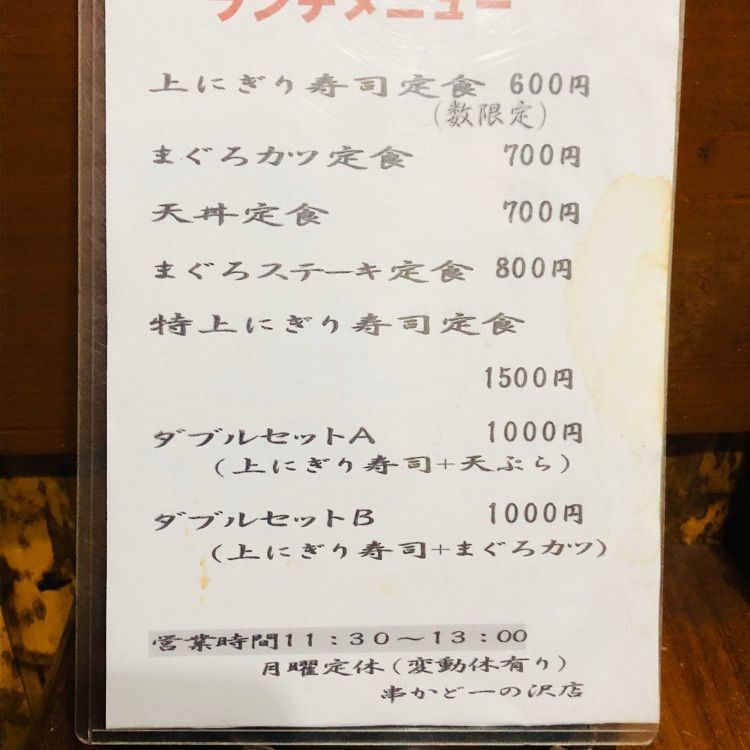 ランチメニュー
上にぎり寿司定食 600円
(数限定)
まぐろカツ定食 700円
天丼定食 700円
まぐろステーキ定食 800円
特上にぎり寿司定食
1500円
ダブルセットA 1000円
(上にぎり寿司+天ぷら)
ダブルセットB 1000円
(上にぎり寿司+まぐろカツ)
営業時間11:30～13:00
月曜定休(変動休有り)
串かど一の沢店